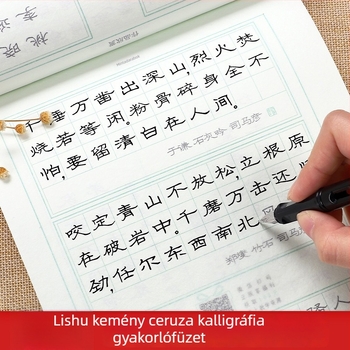 李
桃 晓
作品欣赏
千锤万凿出深山,烈火焚
烧若等闲。粉骨碎身全不
怕,要留清白在人间。
于谦 石灰吟 司马彦
咬定青山不放松,立根原
在破岩中。千磨万击还
劲,任尔东西南北
郑燮 竹石 司马
Lishu kemény ceruza kalligráfia
gyakorlófüzet